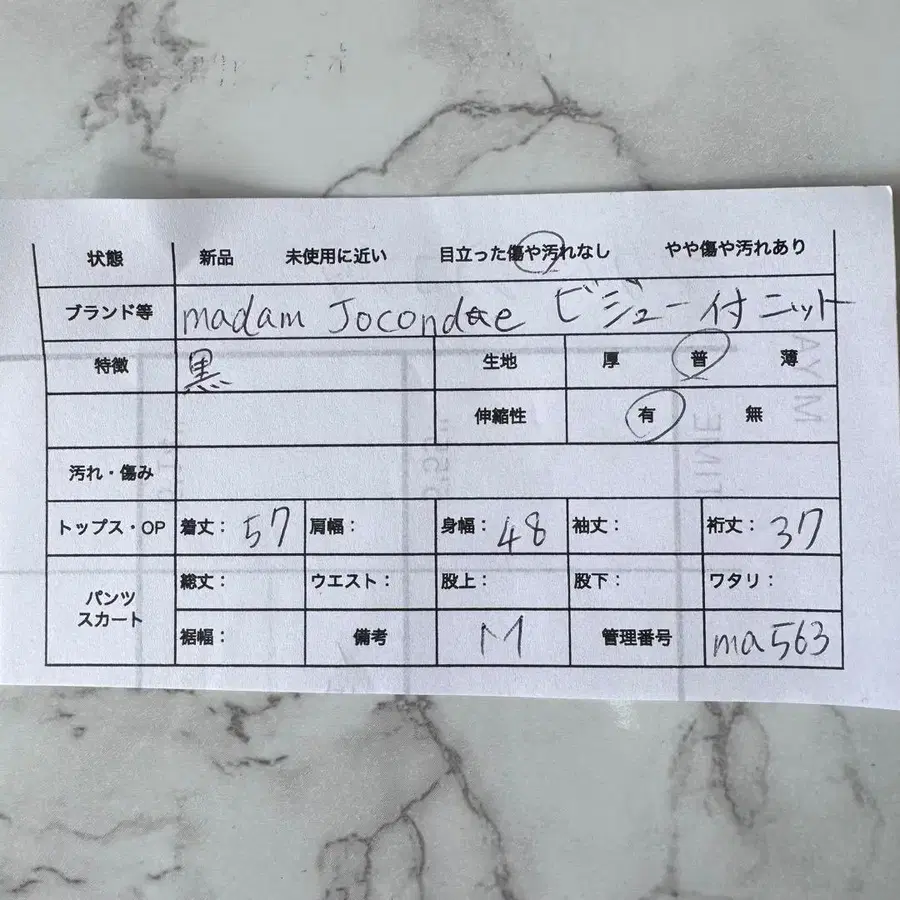 状態 新品 未使用に近い 目立った傷や汚れなし やや傷や汚れあり
ブランド等 madam Jocondee ビジュー付ニット
特徴 黒 生地 厚 普 薄
伸縮性 有 無
汚れ・傷み
トップス・OP 着丈: 57 肩幅: 身幅: 48 袖丈: 裄丈: 37
パンツ 総丈: ウエスト: 股上: 股下: ワタリ:
スカート 裾幅: 備考 M 管理番号 ma563